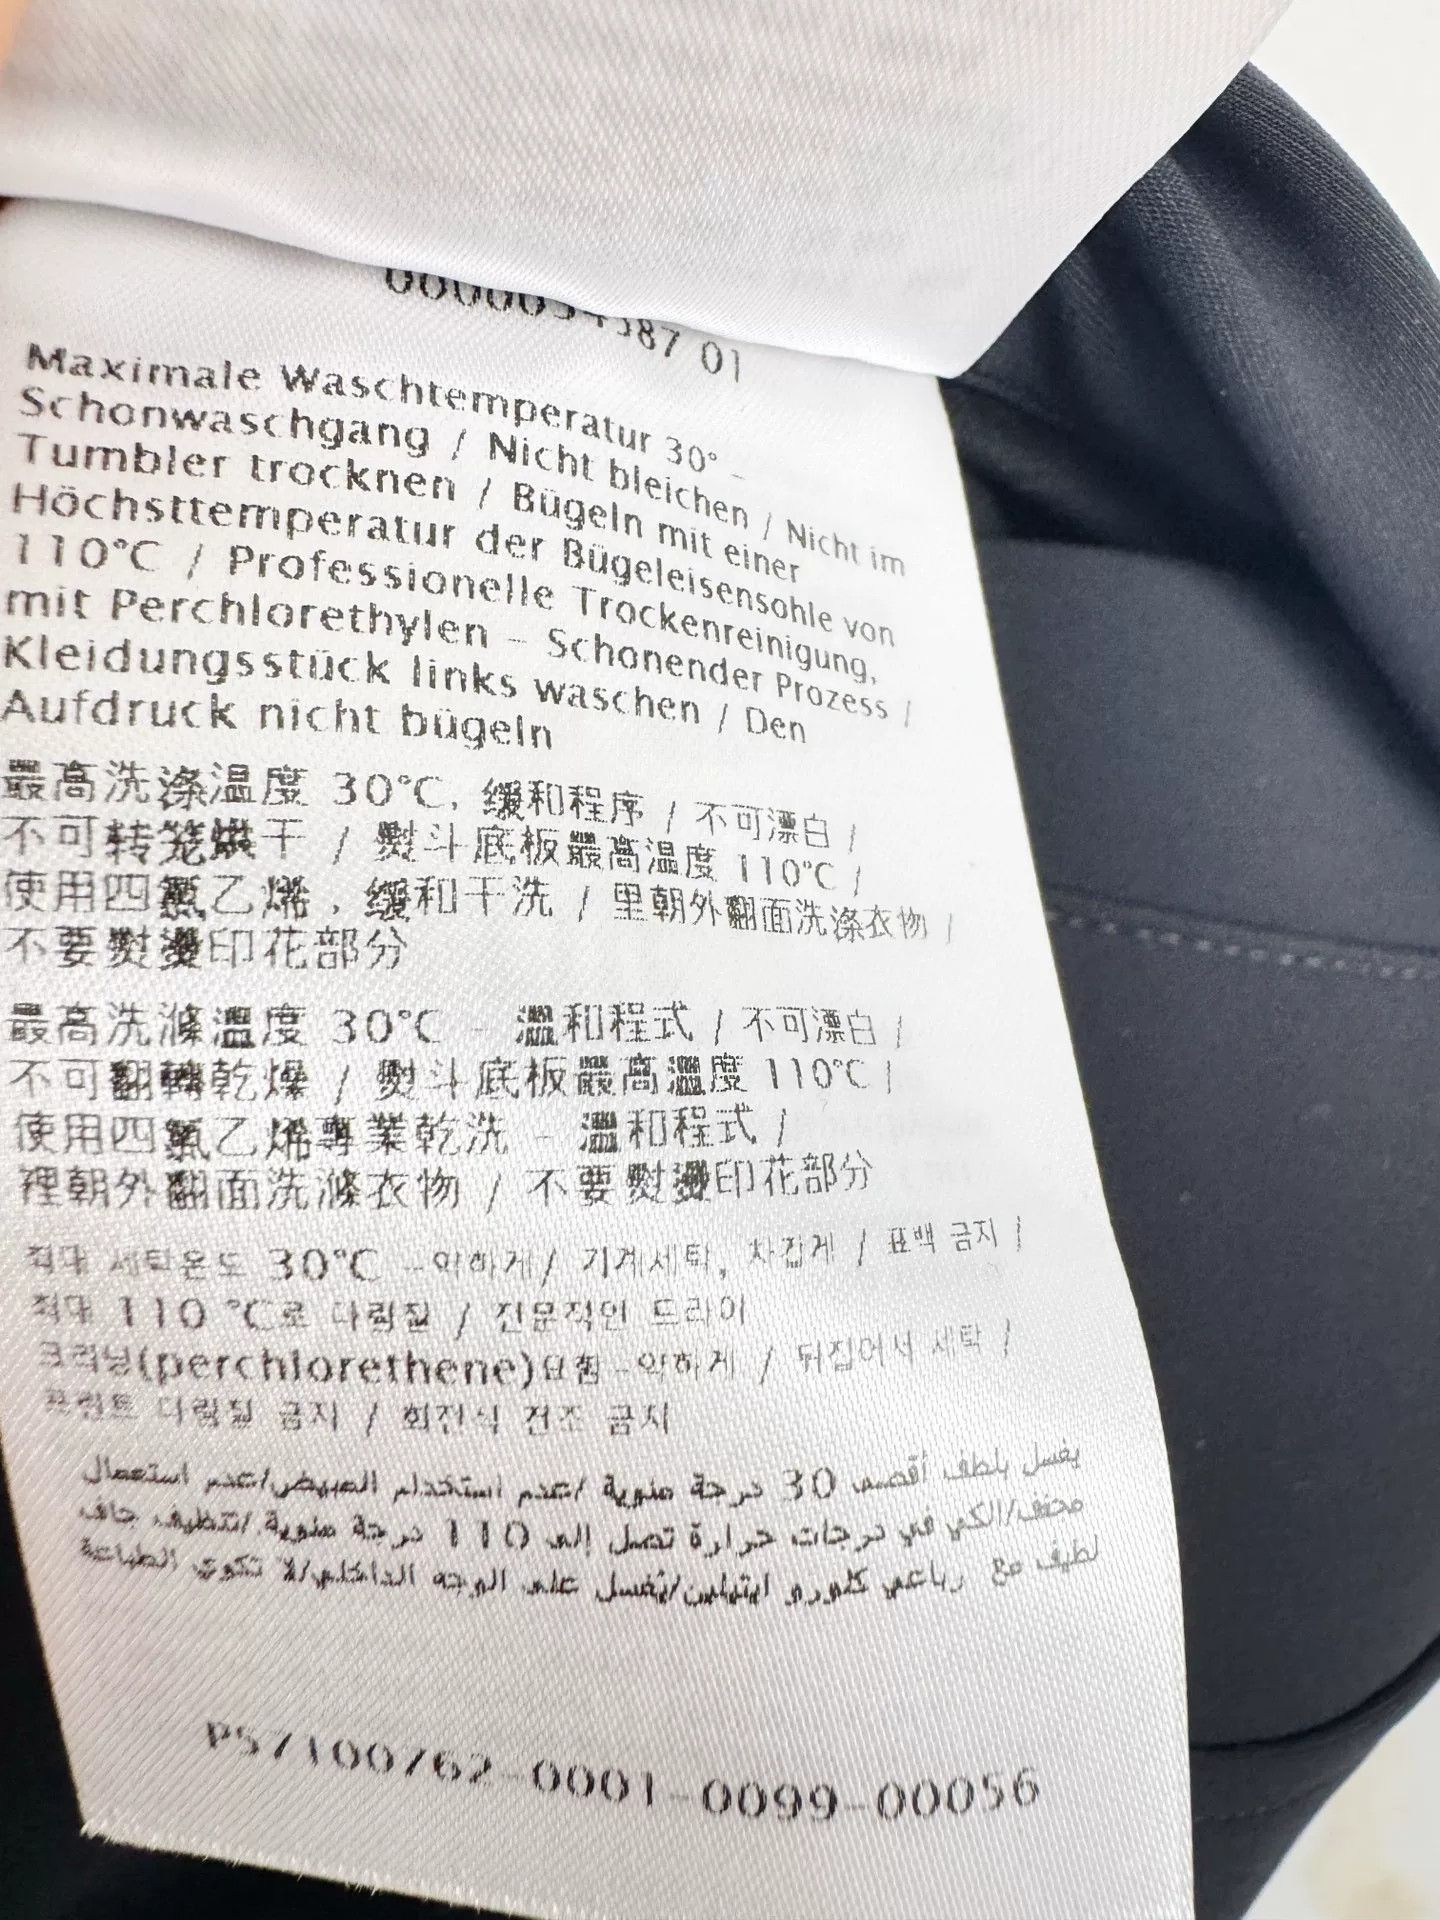 87 01
Maximale Waschtemperatur 30° –
Schonwaschgang / Nicht bleichen / Nicht im
Tumbler trocknen / Bügeln mit einer
Höchsttemperatur der Bügeleisensohle von
110°C / Professionelle Trockenreinigung,
mit Perchlorethylen – Schonender Prozess /
Kleidungsstück links waschen / Den
Aufdruck nicht bügeln
最高洗涤温度 30°C, 缓和程序 / 不可漂白 /
不可转笼烘干 / 熨斗底板最高温度 110°C /
使用四氯乙烯，缓和干洗 / 里朝外翻面洗涤衣物 /
不要熨烫印花部分
最高洗滌溫度 30°C - 溫和程式 / 不可漂白 /
不可翻轉乾燥 / 熨斗底板最高溫度 110°C /
使用四氯乙烯專業乾洗 - 溫和程式 /
裡朝外翻面洗滌衣物 / 不要熨燙印花部分
최대 세탁온도 30°C -약하게/ 기계세탁, 차갑게 / 표백 금지 /
최대 110 °C로 다림질 / 전문적인 드라이
크리닝(perchlorethene)포함-약하게 / 뒤집어서 세탁 /
프린트 다림질 금지 / 회전식 건조 금지
يغسل بلطف أقصى 30 درجة مئوية /عدم استخدام المبيض/عدم استعمال
مجفف/الكي في درجات حرارة تصل إلى 110 درجة مئوية /تنظيف جاف
لطيف مع رباعي كلورو ايثيلين/يغسل على الوجه الداخلي/لا تكوي الطباعة
P57100762-0001-0099-00056